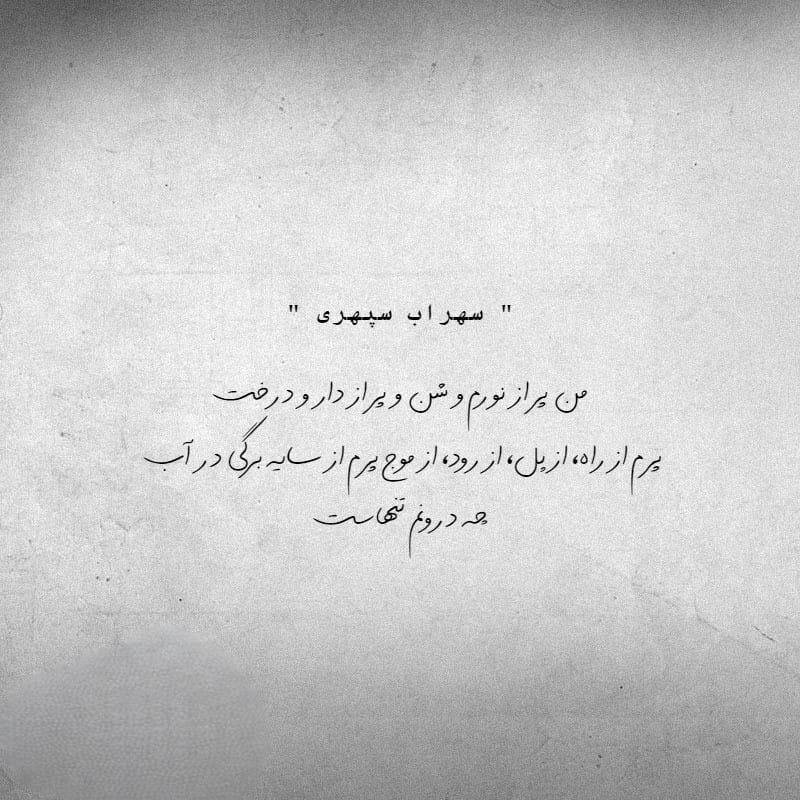 " سهراب سپهری "
من پر از نورم و شن و پر از دار و درخت
پرم از راه، از پل، از رود، از موج پرم از سایه برگی در آب
چه درونم تنهاست